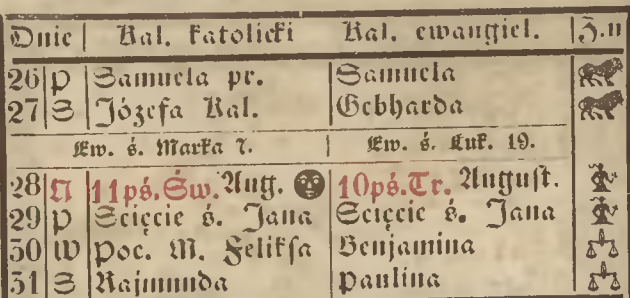 Dnie | Kal. katolicki Kal. ewangiel. Z.n
26 P Samuela pr. Samuela
27 S Józefa Kal. Gebharda
Ew. ś. Marka 7. Ew. ś. Łuk. 19.
28 N 11pś.Św. Aug. 10pś.Tr. August.
29 P Scięcie ś. Jana Scięcie ś. Jana
30 W Poc. M. Feliksa Benjamina
31 S Rajmunda Paulina